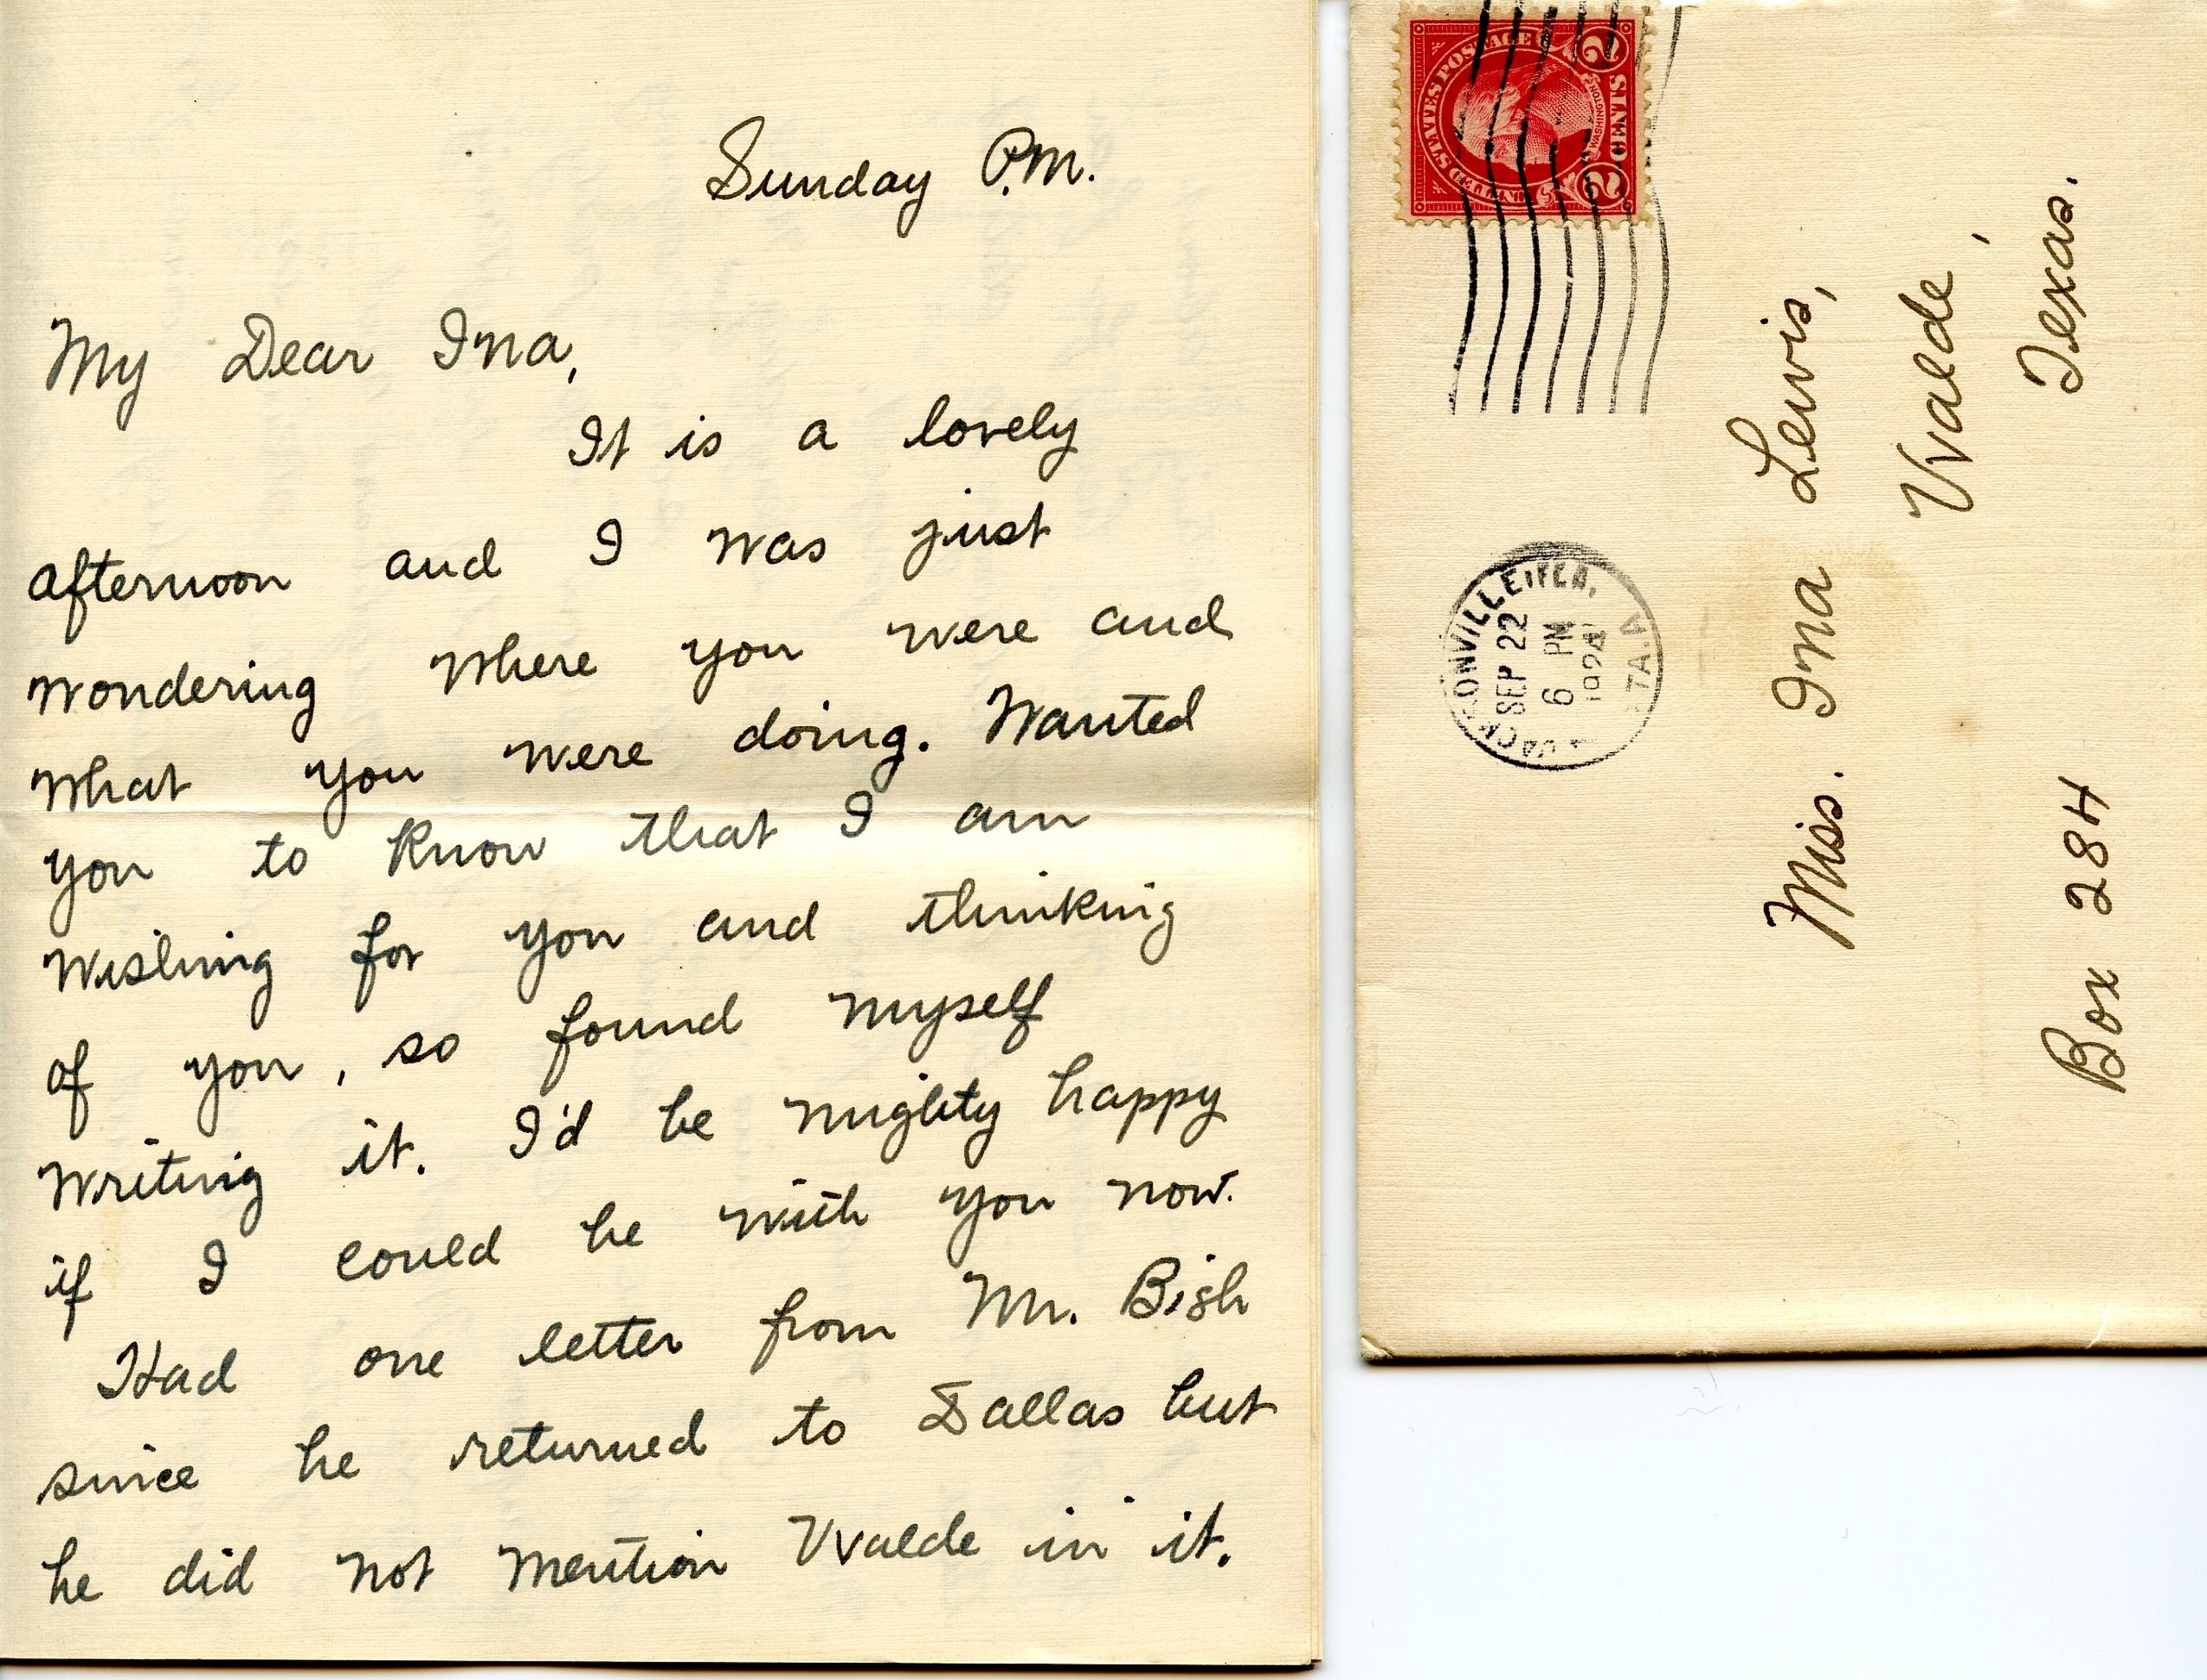 Sunday P.M.
My Dear Ina,
It is a lovely
afternoon and I was just
wondering where you were and
what you were doing. Wanted
you to know that I am
wishing for you and thinking
of you, so found myself
writing it. I'd be mighty happy
if I could be with you now.
Had one letter from Mr. Bish
since he returned to Dallas but
he did not mention Uvalde in it.
UNITED STATES POSTAGE
WASHINGTON
2 CENTS 2
JACKSONVILLE, FLA.
SEP 22
6 PM
1924
STA. A
Miss. Ina Lewis,
Uvalde,
Texas.
Box 284